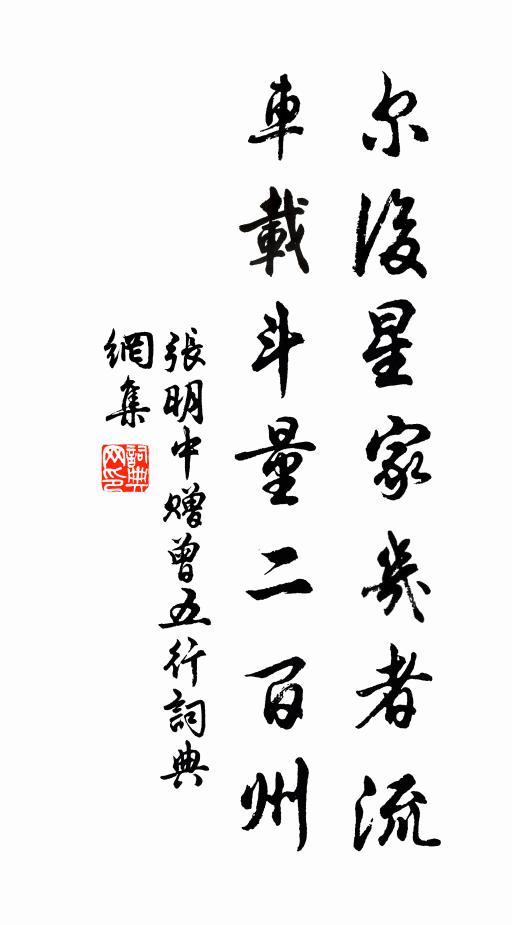 尔後星家幾者流
車載斗量二百州
張明中贈曾五行詞典
網集
詞典
网印